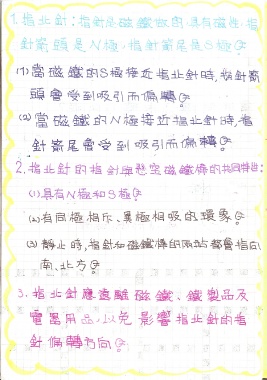 1.指北針:指針是磁鐵做的,具有磁性,指
針箭頭是N極,指針箭尾是S極。
(1)當磁鐵的S極接近指北針時,指針箭
頭會受到吸引而偏轉。
(2)當磁鐵的N極接近指北針時,指
針箭尾會受到吸引而偏轉。
2.指北針的指針與懸空磁鐵棒的共同特性:
(1)具有N極和S極。
(2)有同極相斥、異極相吸的現象。
(3)靜止時,指針和磁鐵棒的兩端都會指向
南、北方。
3.指北針應遠離磁鐵、鐵製品及
電器用品,以免影響指北針的指
針偏轉方向。